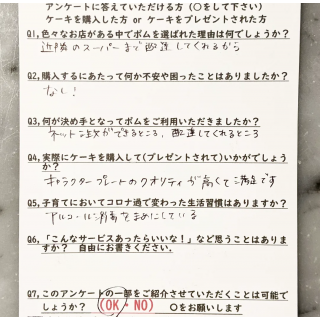 アンケートに答えていただける方（〇をして下さい）
ケーキを購入した方 or ケーキをプレゼントされた方
Q1,色々なお店がある中でボムを選ばれた理由は何でしょうか？
近隣のスーパーまで配達してくれるから
Q2,購入するにあたって何か不安や困ったことはありましたか？
なし！
Q3,何が決め手となってボムをご利用いただきましたか？
ネット注文ができるところ、配達してくれるところ
Q4,実際にケーキを購入して(プレゼントされて)いかがでしょう
か？
キャラクタープレートのクオリティが高くて満足です
Q5,子育てにおいてコロナ過で変わった生活習慣はありますか？
アルコール消毒をまめにしている
Q6,「こんなサービスあったらいいな！」など思うことはありま
すか？ 自由にお書きください。
Q7,このアンケートの一部をご紹介させていただくことは可能で
しょうか？ (OK・NO) 〇をお願いします